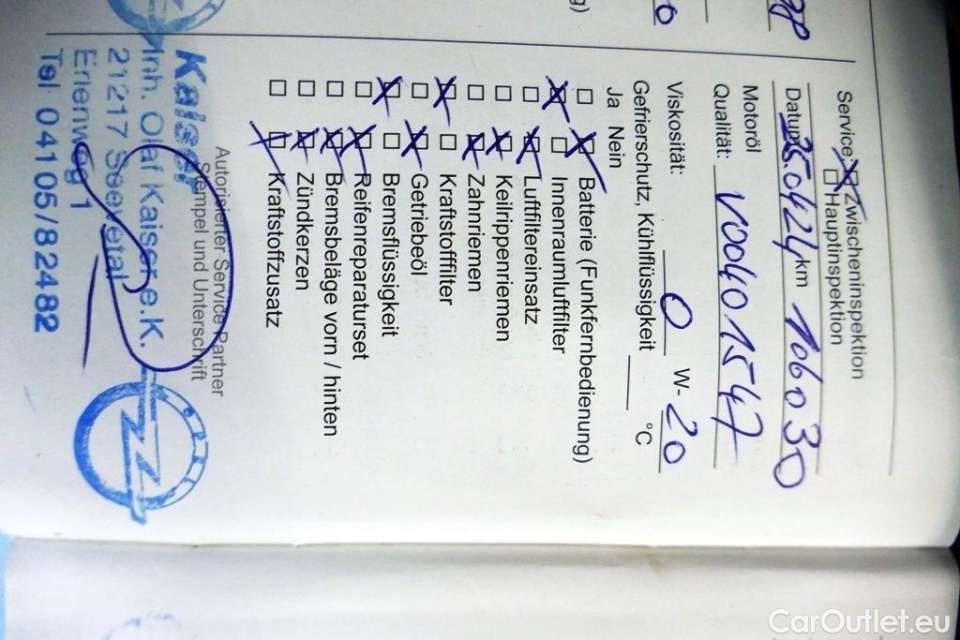 Service: ☒ Zwischeninspektion
☐ Hauptinspektion
Datum 25.04.24 km 106030
Motoröl
Qualität: V0040 1547
Viskosität: 0 W- 20
Gefrierschutz, Kühlflüssigkeit ____ °C
Ja Nein
☐ ☒ Batterie (Funkfernbedienung)
☒ ☐ Innenraumluftfilter
☐ ☒ Luftfiltereinsatz
☐ ☒ Keilrippenriemen
☐ ☒ Zahnriemen
☒ ☐ Kraftstofffilter
☐ ☒ Getriebeöl
☒ ☐ Bremsflüssigkeit
☐ ☒ Reifenreparaturset
☐ ☒ Bremsbeläge vorn / hinten
☐ ☒ Zündkerzen
☐ ☒ Kraftstoffzusatz
Autorisierter Service Partner
Stempel und Unterschrift
Kaiser
Inh. Olaf Kaiser e.K.
21217 Seevetal
Erlenweg 1
Tel 04105/82482
CarOutlet.eu